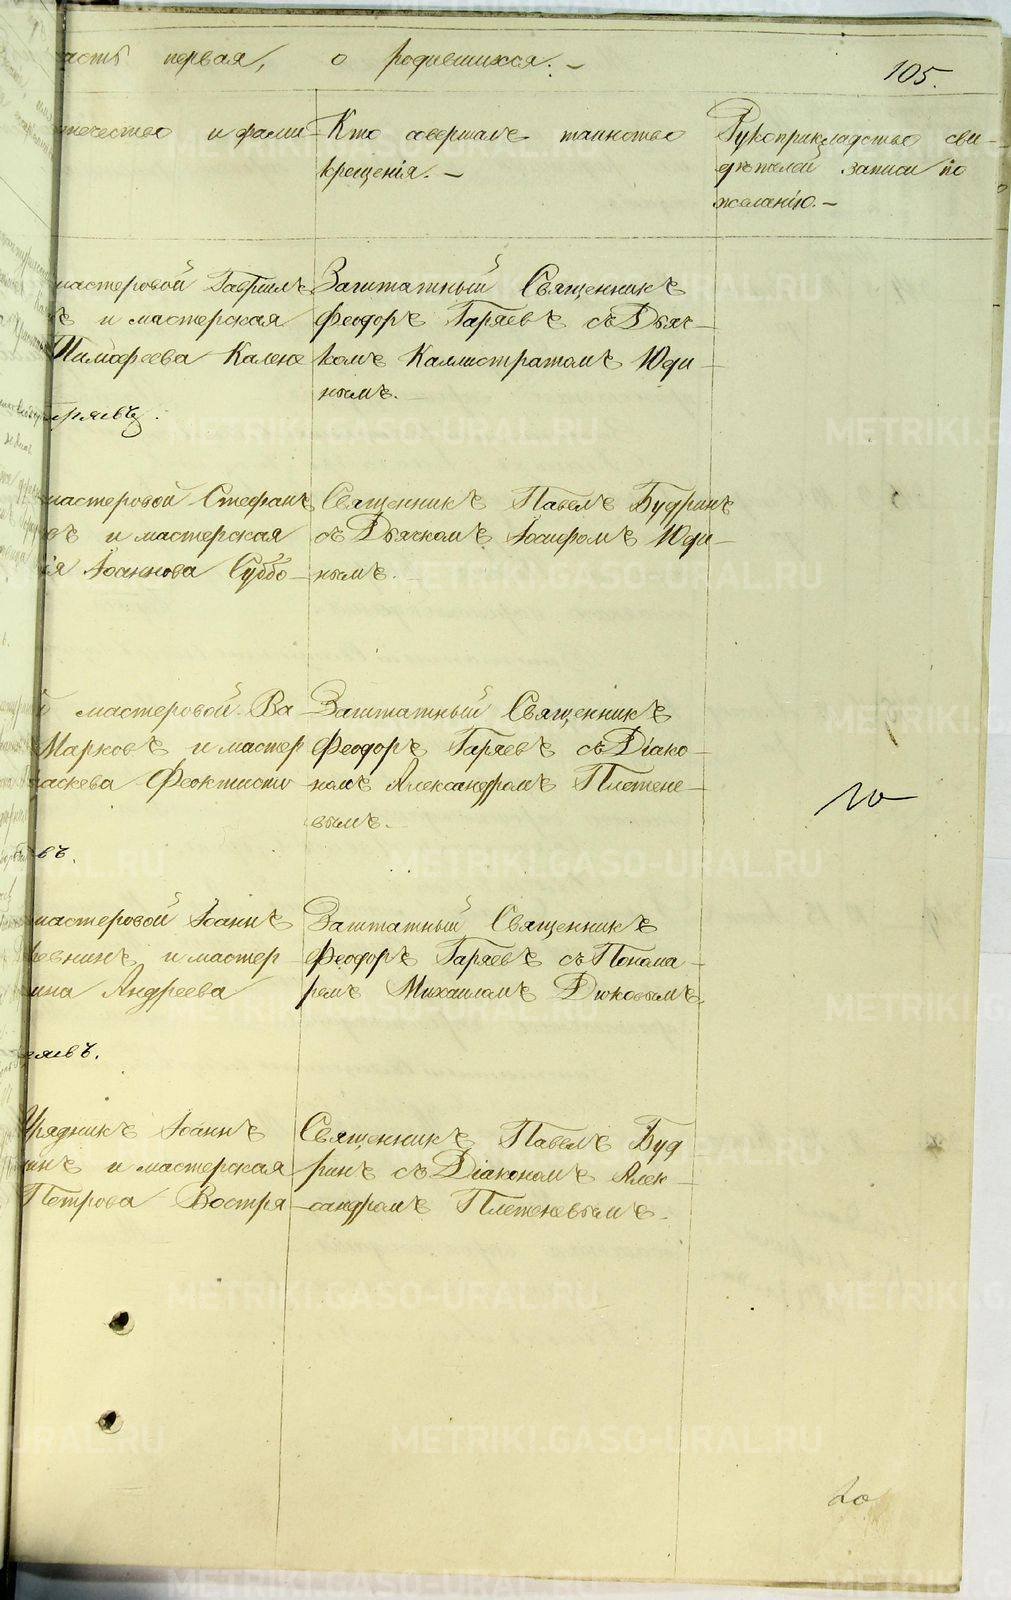 асть первая, о родившихся. –
105.
отчество и фами-
Кто совершалъ таинство
крещенія. –
Рукоприкладство сви-
дѣтелей записи по
желанію. –
мастеровой Гавриилъ
ъ и мастерская
Тимофеева Калене
Заштатный Священникъ
Феодоръ Гаряевъ съ Дьяч-
комъ Каллистратомъ Юди-
нымъ. –
мастеровой Стефанъ
въ и мастерская
ія Іоаннова Суббо-
Священникъ Павелъ Будринъ
съ Дьячкомъ Іосифомъ Юди-
нымъ. –
й мастеровой Ва
Марковъ и мастер
раскева Феоктисто
въ.
Заштатный Священникъ
Феодоръ Гаряевъ съ Діако-
номъ Александромъ Плетене-
вымъ. –
10
мастеровой Іоаннъ
евнинъ и мастер
ина Андреева
Заштатный Священникъ
Феодоръ Гаряевъ съ Понома-
ремъ Михаиломъ Дюковымъ.
Урядникъ Іоаннъ
инъ и мастерская
Петрова Востря
Священникъ Павелъ Буд
ринъ съ Діакономъ Алек-
сандромъ Плетеневымъ. –
METRIKI.GASO-URAL.RU